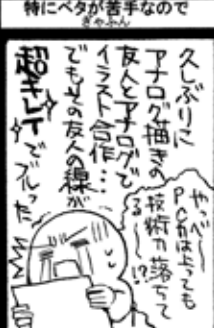 特にベタが苦手なので
ぎゃふん
久しぶりに
アナログ描きの
友人とアナログで
イラスト合作…
でもその友人の線が
超キレイでブルった
やっべー
PC力は上っても
技術力落ちて
る―!?